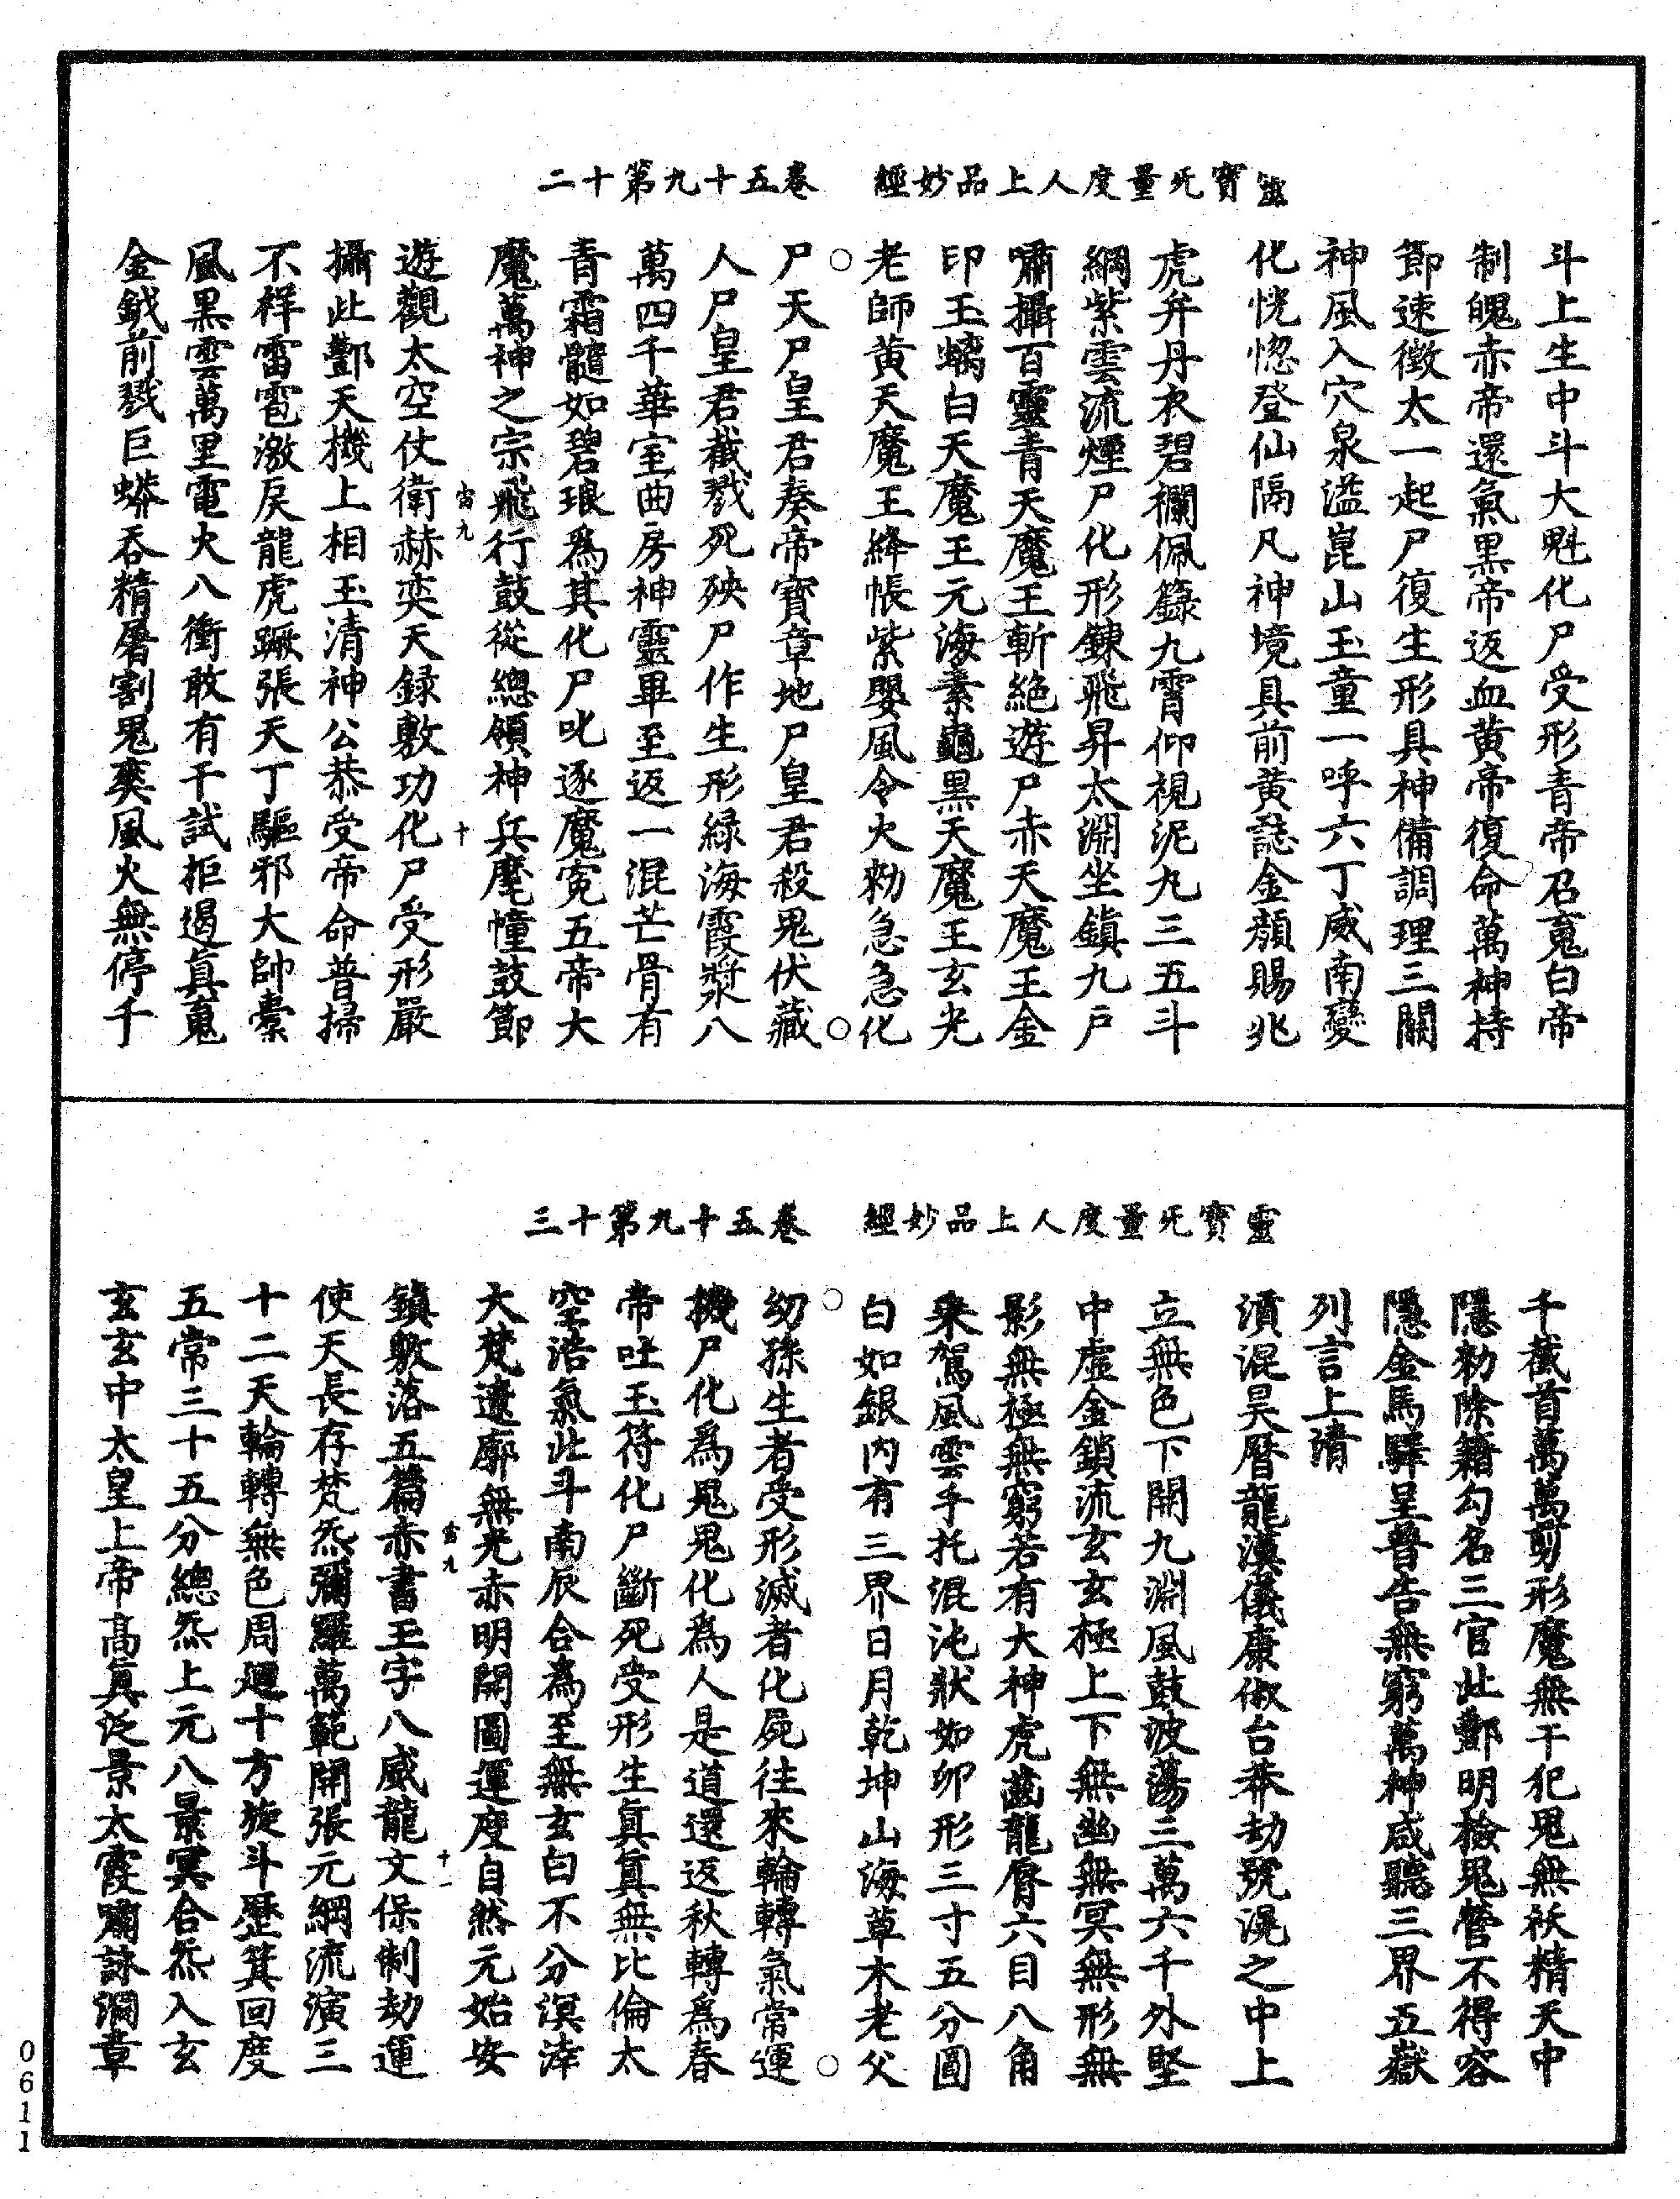 靈寶无量度人上品妙經　卷五十九第十二
斗上生中斗大魁化尸受形青帝召䰟白帝
制魄赤帝還氣黑帝返血黃帝復命萬神持
節速徵太一起尸復生形具神備調理三關
神風入穴泉溢崑山玉童一呼六丁威南變
化恍惚登仙隔凡神境具前黃誌金顏賜兆
虎弁丹衣碧襴佩籙九霄仰視泥丸三五斗
綱紫雲流煙尸化形鍊飛昇太淵坐鎮九戶
嘯攝百靈青天魔王斬絕遊尸赤天魔王金
印玉螭白天魔王元海素龜黑天魔王玄光
老師黃天魔王絳帳紫嬰風令火勑急急化
尸天尸皇君奏帝寶章地尸皇君殺鬼伏藏
人尸皇君截戮死殃尸作生形緑海霞漿八
萬四千華室曲房神靈畢至返一混芒骨有
青霜髓如碧琅爲其化尸叱逐魔寃五帝大
魔萬神之宗飛行鼓從總領神兵麾幢鼓節
宙九　十
遊觀太空仗衛赫奕天録敷功化尸受形嚴
攝此酆天機上相玉清神公恭受帝命普掃
不祥雷雹激戾龍虎蹶張天丁驅邪大帥橐
風黑雲萬里電火八衝敢有干試拒遏真䰟
金鉞前戮巨蟒吞精屠割鬼爽風火無停千
靈寶无量度人上品妙經　卷五十九第十三
千截首萬萬剪形魔無干犯鬼無袄精天中
隱勑除籍勾名三官此酆明檢鬼營不得容
隱金馬驛呈普告無窮萬神咸聽三界五嶽
列言上清
澒混昊曆龍漢儀康俶台莽劫號滉之中上
立無色下開九淵風鼓波蕩三萬六千外堅
中虛金鎖流玄玄極上下無幽無冥無形無
影無極無窮若有大神虎齒龍脣六目八角
乘駕風雲手托混沌狀如卵形三寸五分圓
白如銀內有三界日月乾坤山海草木老父
幼孫生者受形滅者化屍往來輪轉氣常運
機尸化爲鬼鬼化爲人是道還返秋轉爲春
帝吐玉符化尸斷死受形生真真無比倫太
空浩氣北斗南辰合為至無玄白不分溟涬
大梵遼廓無光赤明開圖運度自然元始安
宙九　十一
鎮敷落五篇赤書玉字八威龍文保制劫運
使天長存梵炁彌羅萬範開張元綱流演三
十二天輪轉無色周廻十方旋斗歷箕回度
五常三十五分總炁上元八景冥合炁入玄
玄玄中太皇上帝高真泛景太霞嘯詠洞章
0611